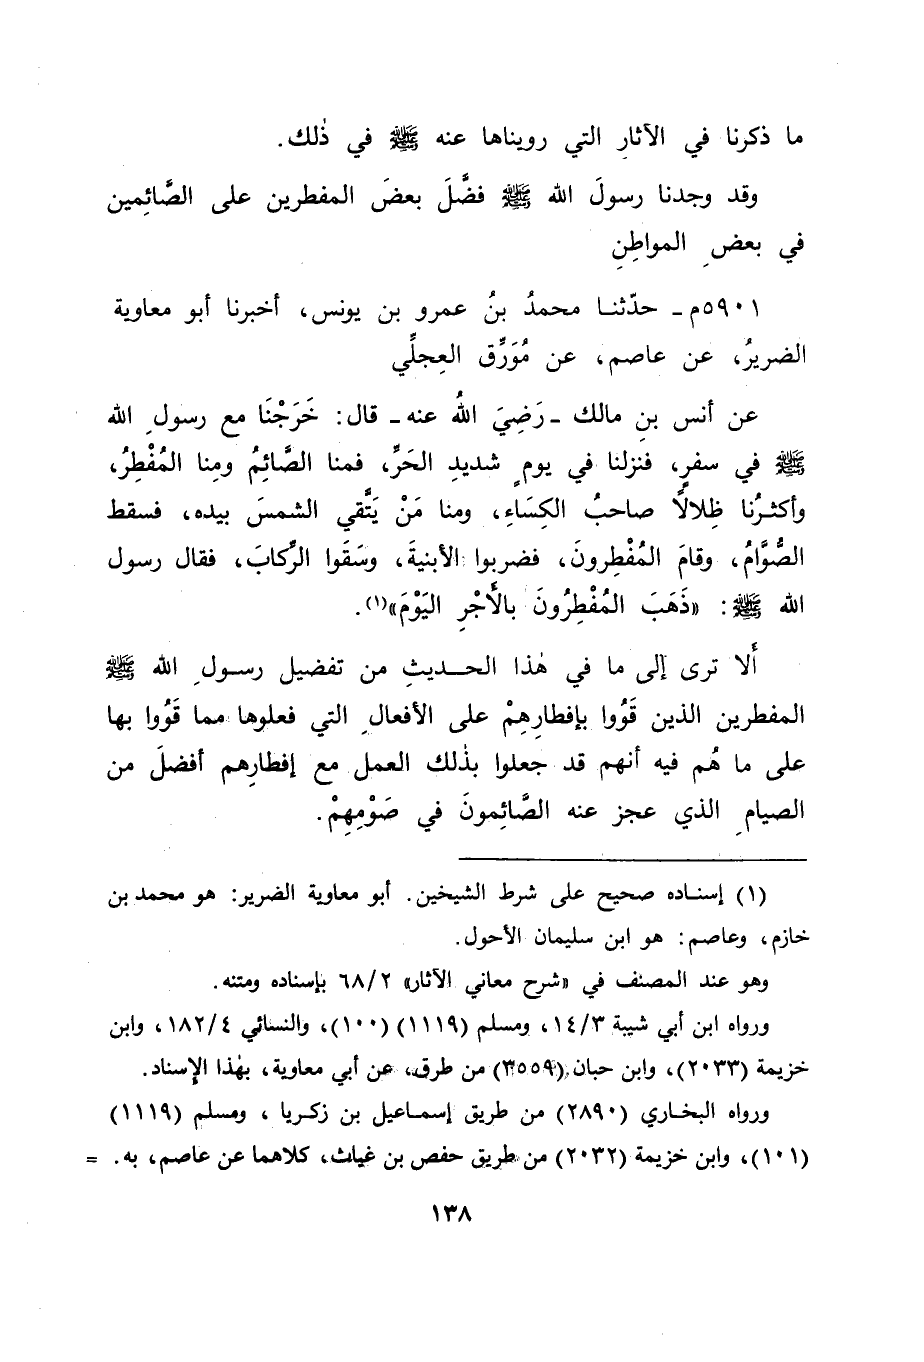 ما ذكرنا في الآثارِ التي رويناها عنه ﷺ في ذٰلك.
وقد وجدنا رسولَ الله ﷺ فضَّلَ بعضَ المفطرين على الصَّائِمين
في بعضِ المواطِنِ
٥٩٠١م ـ حدّثنا محمدُ بنُ عمرو بن يونس، أخبرنا أبو معاوية
الضريرُ، عن عاصم، عن مُوَرِّق العِجلِّي
عن أنس بنِ مالك ـ رَضِيَ اللهُ عنه ـ قال: خَرَجْنَا مع رسولِ الله
ﷺ في سفرٍ، فنزلنا في يومٍ شديدِ الحَرِّ، فمنا الصَّائِمُ ومِنا المُفْطِرُ،
وأكثرُنا ظِلالًا صاحبُ الكِسَاءِ، ومنا مَنْ يَتَّقي الشمسَ بيده، فسقط
الصُّوَّامُ، وقامَ المُفْطِرونَ، فضربوا الأبنيةَ، وسَقَوا الرِّكابَ، فقال رسول
الله ﷺ: «ذَهَبَ المُفْطِرُونَ بالأَجْرِ اليَوْمَ»(١).
أَلا ترى إلى ما في هٰذا الحديثِ من تفضيل رسولِ الله ﷺ
المفطرين الذين قَوُوا بإفطارِهِمْ على الأفعالِ التي فعلوها مما قَوُوا بها
على ما هُم فيه أنهم قد جعلوا بذٰلك العمل مع إفطارِهم أفضلَ من
الصيامِ الذي عجز عنه الصَّائِمونَ في صَوْمِهِمْ.
(١) إسناده صحيح على شرط الشيخين. أبو معاوية الضرير: هو محمد بن
خازم، وعاصم: هو ابن سليمان الأحول.
وهو عند المصنف في «شرح معاني الآثار» ٦٨/٢ بإسناده ومتنه.
ورواه ابن أبي شيبة ١٤/٣، ومسلم (١١١٩) (١٠٠)، والنسائي ١٨٢/٤، وابن
خزيمة (٢٠٣٣)، وابن حبان (٣٥٥٩) من طرق، عن أبي معاوية، بهٰذا الإسناد.
ورواه البخاري (٢٨٩٠) من طريق إسماعيل بن زكريا ، ومسلم (١١١٩)
(١٠١)، وابن خزيمة (٢٠٣٢) من طريق حفص بن غياث، كلاهما عن عاصم، به. =
١٣٨